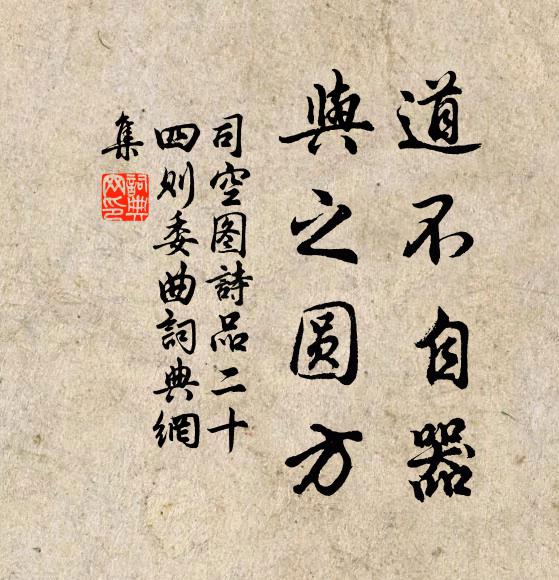 道不自器
與之圆方
司空图詩品二十
四则委曲詞典網
集
詞典網印